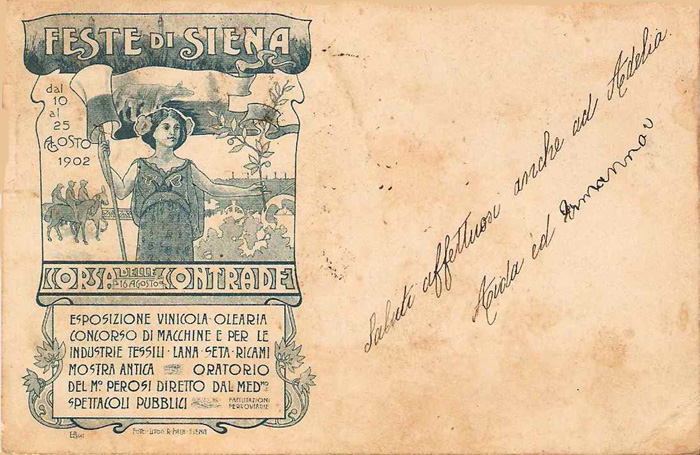 FESTE DI SIENA
dal
10
al
25
AGOSTO
1902
CORSA DELLE CONTRADE
16 AGOSTO
ESPOSIZIONE VINICOLA · OLEARIA
CONCORSO DI MACCHINE E PER LE
INDUSTRIE TESSILI · LANA · SETA · RICAMI
MOSTRA ANTICA ORATORIO
DEL Mº PEROSI DIRETTO DAL MEDMO
SPETTACOLI PUBBLICI FACILITAZIONI
FERROVIARIE
SIENA
Saluti affettuosi anche ad Adelia
Aida ed